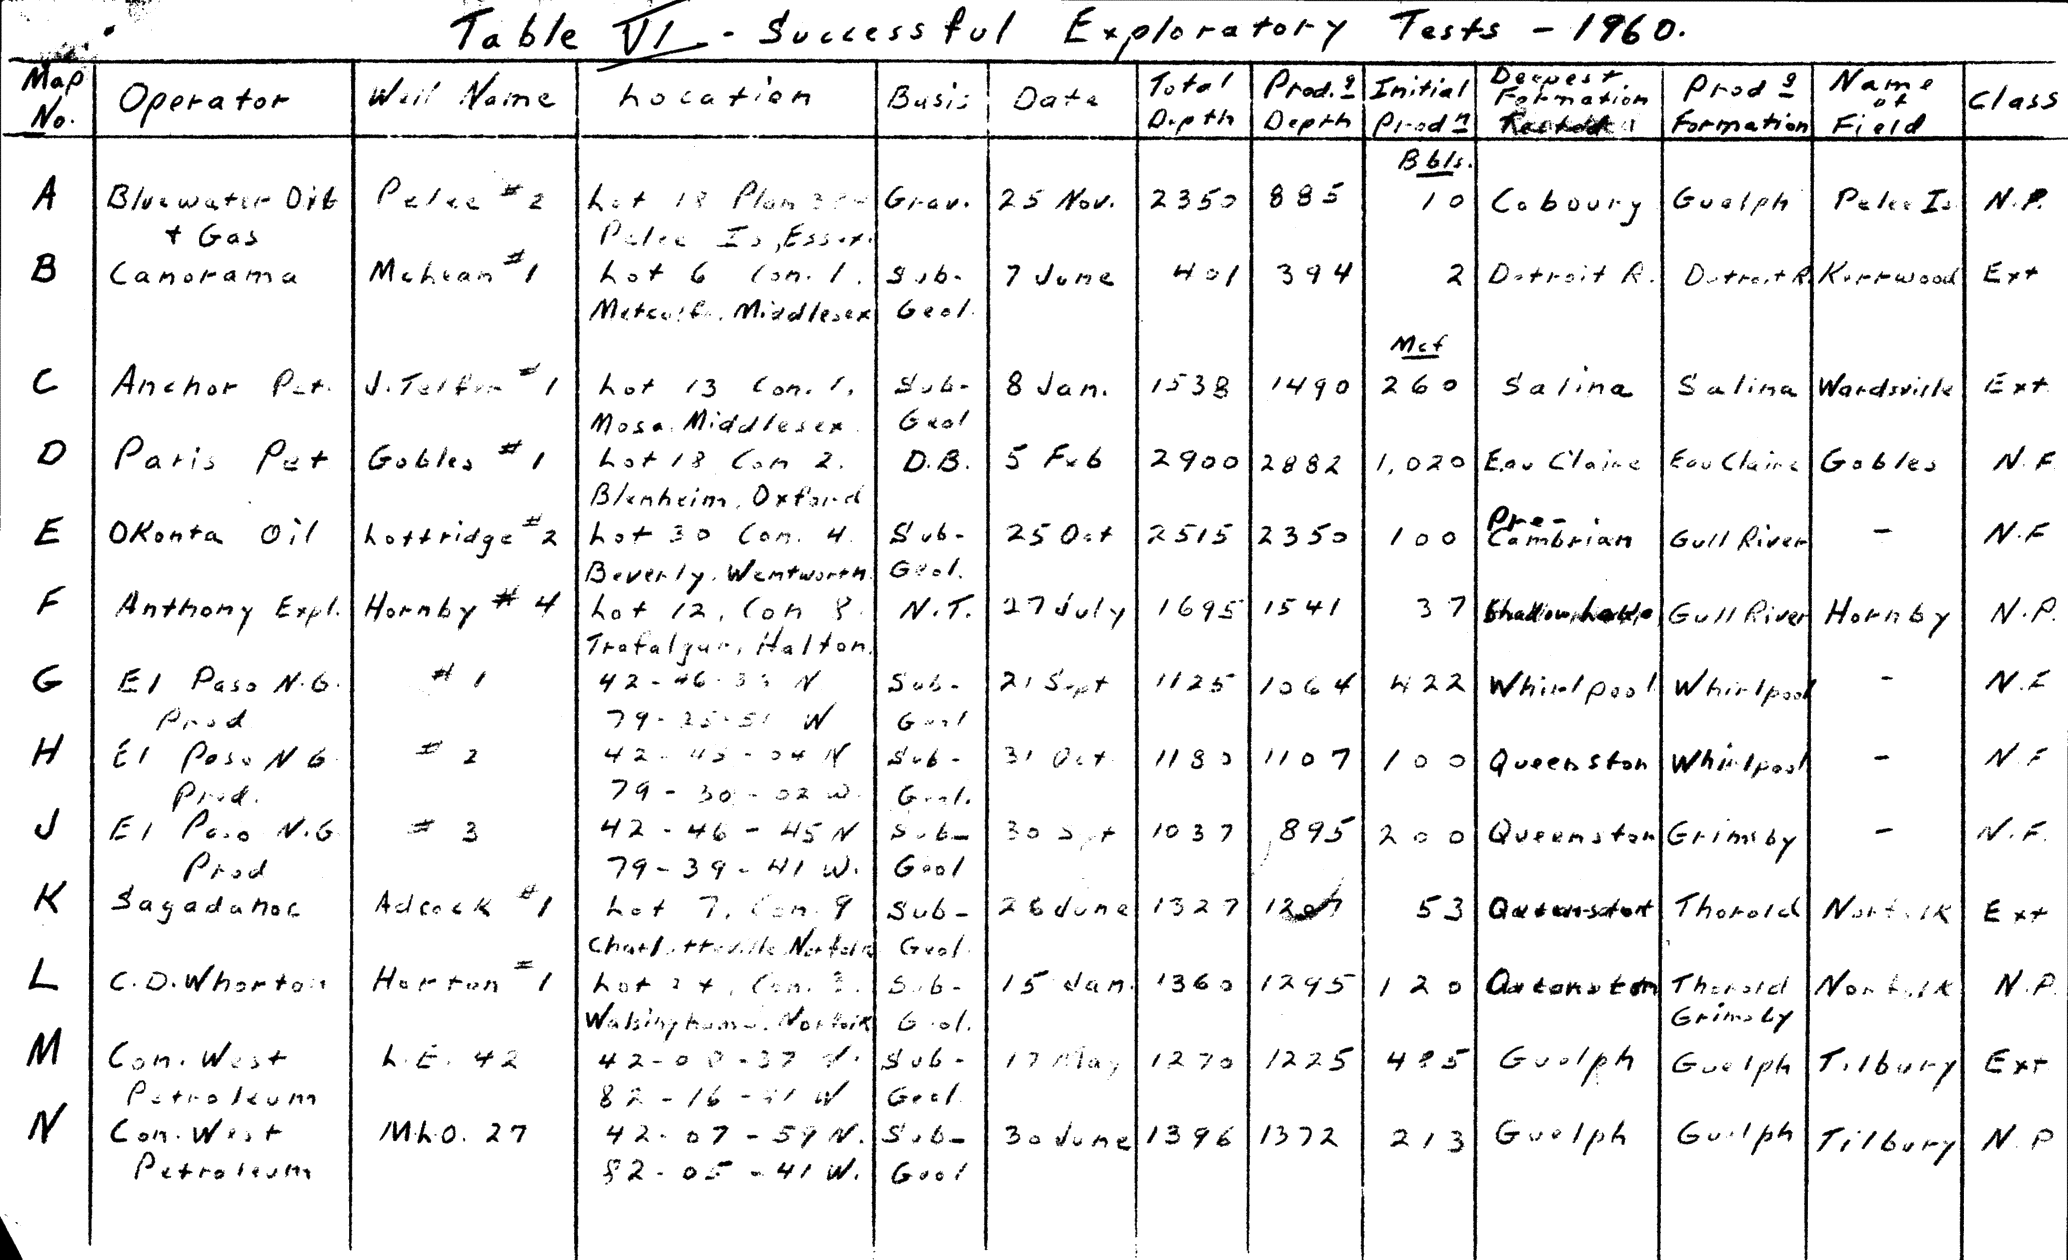 Table VI - Successful Exploratory Tests - 1960.
Map No. Operator Well Name Location Basis Date Total Depth Prod.g Depth Initial Prod n Deepest Formation Prod g Formation Name of Field Class
Bbls.
A Bluewater Oil Pelee #2 Lot 18 Plan Grav. 25 Nov. 2350 885 10 Cobourg Guelph Pelee Is N.P.
+ Gas Pelee Is, Essex.
B Canorama McLean #1 Lot 6 Con. 1. Sub- 7 June 401 394 2 Detroit R. Detroit R. Kerrwood Ext
Metcalfe, Middlesex Geol.
Mcf
C Anchor Pet. J. Telfer #1 Lot 13 Con. 1, Sub- 8 Jan. 1538 1490 260 Salina Salina Wardsville Ext
Mosa, Middlesex. Geol
D Paris Pet Gobles #1 Lot 18 Con 2. D.B. 5 Feb 2900 2882 1,020 Eau Claire Eau Claire Gobles N.F.
Blenheim, Oxford
E OKonta Oil Lottridge #2 Lot 30 Con. 4. Sub- 25 Oct 2515 2350 100 Pre-Cambrian Gull River - N.F
Beverly, Wentworth. Geol.
F Anthony Expl. Hornby #4 Lot 12, Con 8. N.T. 27 July 1695 1541 37 Gull River Hornby N.P.
Trafalgar, Halton.
G El Paso N.G. #1 42-46-33 N Sub- 21 Sept 1125 1064 422 Whirlpool Whirlpool - N.F
Prod 79-35-51 W Geol
H El Paso N G #2 42-45-04 N Sub- 31 Oct 1180 1107 100 Queenston Whirlpool - N.F
Prod. 79-30-02 W. Geol.
J El Paso N.G #3 42-46-45 N Sub- 30 Sept 1037 895 200 Queenston Grimsby - N.F.
Prod 79-39-41 W. Geol
K Sagadahoc Adcock #1 Lot 7, Con. 9 Sub- 26 June 1327 53 Queenston Thorold Norfolk Ext
Charlotteville, Norfolk Geol.
L C.D. Whorton Horton #1 Lot 24, Con. 3. Sub- 15 Jan. 1360 1295 120 Queenston Thorold Norfolk N.P.
Walsingham, Norfolk Geol. Grimsby
M Con. West L.E. 42 42-08-37 N. Sub- 17 May 1270 1225 485 Guelph Guelph Tilbury Ext
Petroleum 82-16-41 W Geol.
N Con. West M.L.O. 27 42-07-59 N. Sub- 30 June 1396 1372 213 Guelph Guelph Tilbury N.P
Petroleum 82-05-41 W. Geol